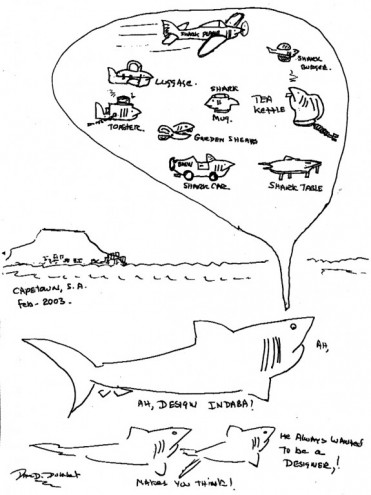 SHARK PLANE
SHARK
BURGER.
LUGGAGE.
SHARK
MUG.
TEA
KETTLE
TOASTER.
GARDEN SHEARS
BMW
SHARK CAR.
SHARK TABLE
CAPETOWN, S.A.
Feb - 2003.
AH,
AH, DESIGN INDABA!
HE ALWAYS WANTED
TO be a
DESIGNER,!
MAKES YOU THINK!